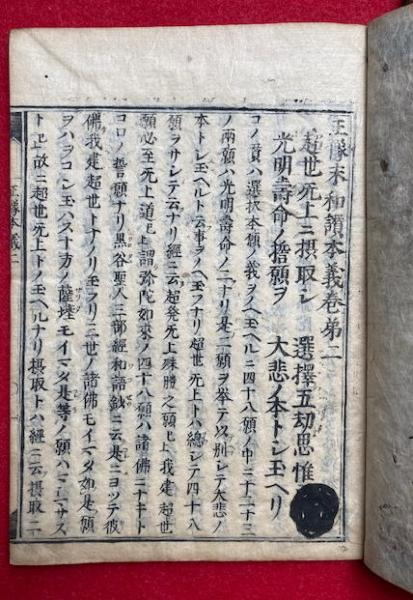 正像末和讃本義卷第二
超世無上ニ攝取シ 選擇五劫思惟
光明壽命ノ誓願ヲ 大悲ノ本トシ玉ヘリ
コノ讃ハ選択本願ノ義ヲノヘ玉ヘルニ四十八願ノ中ニ十二十三
ノ兩願ハ光明壽命ノ二ナリ是二願ヲ挙テ以別シテ大悲ノ
本トシ玉ヘルト云事ヲノヘ玉フナリ超世无上トハ總シテ四十八
願ヲサシテ云ナリ經ニ云超発无上殊勝之願ト上我建超世
願必至无上道ト上謂弥陀如來ノ四十八願ハ諸佛ニナキトコロノ誓願ナリ
黒谷聖人三部經和語鈔ニ云是ニヨツテ彼
佛我建超世トナノリ玉フリ三世ノ諸佛モイマタ如是願
ヲハヲコシ玉ハス十方ノ薩埵モイマタ是等ノ願ハマシマサス
ト上故ニ超世无上トノ玉ヘルナリ摂取トハ經ニ云摂取二
正像本義二